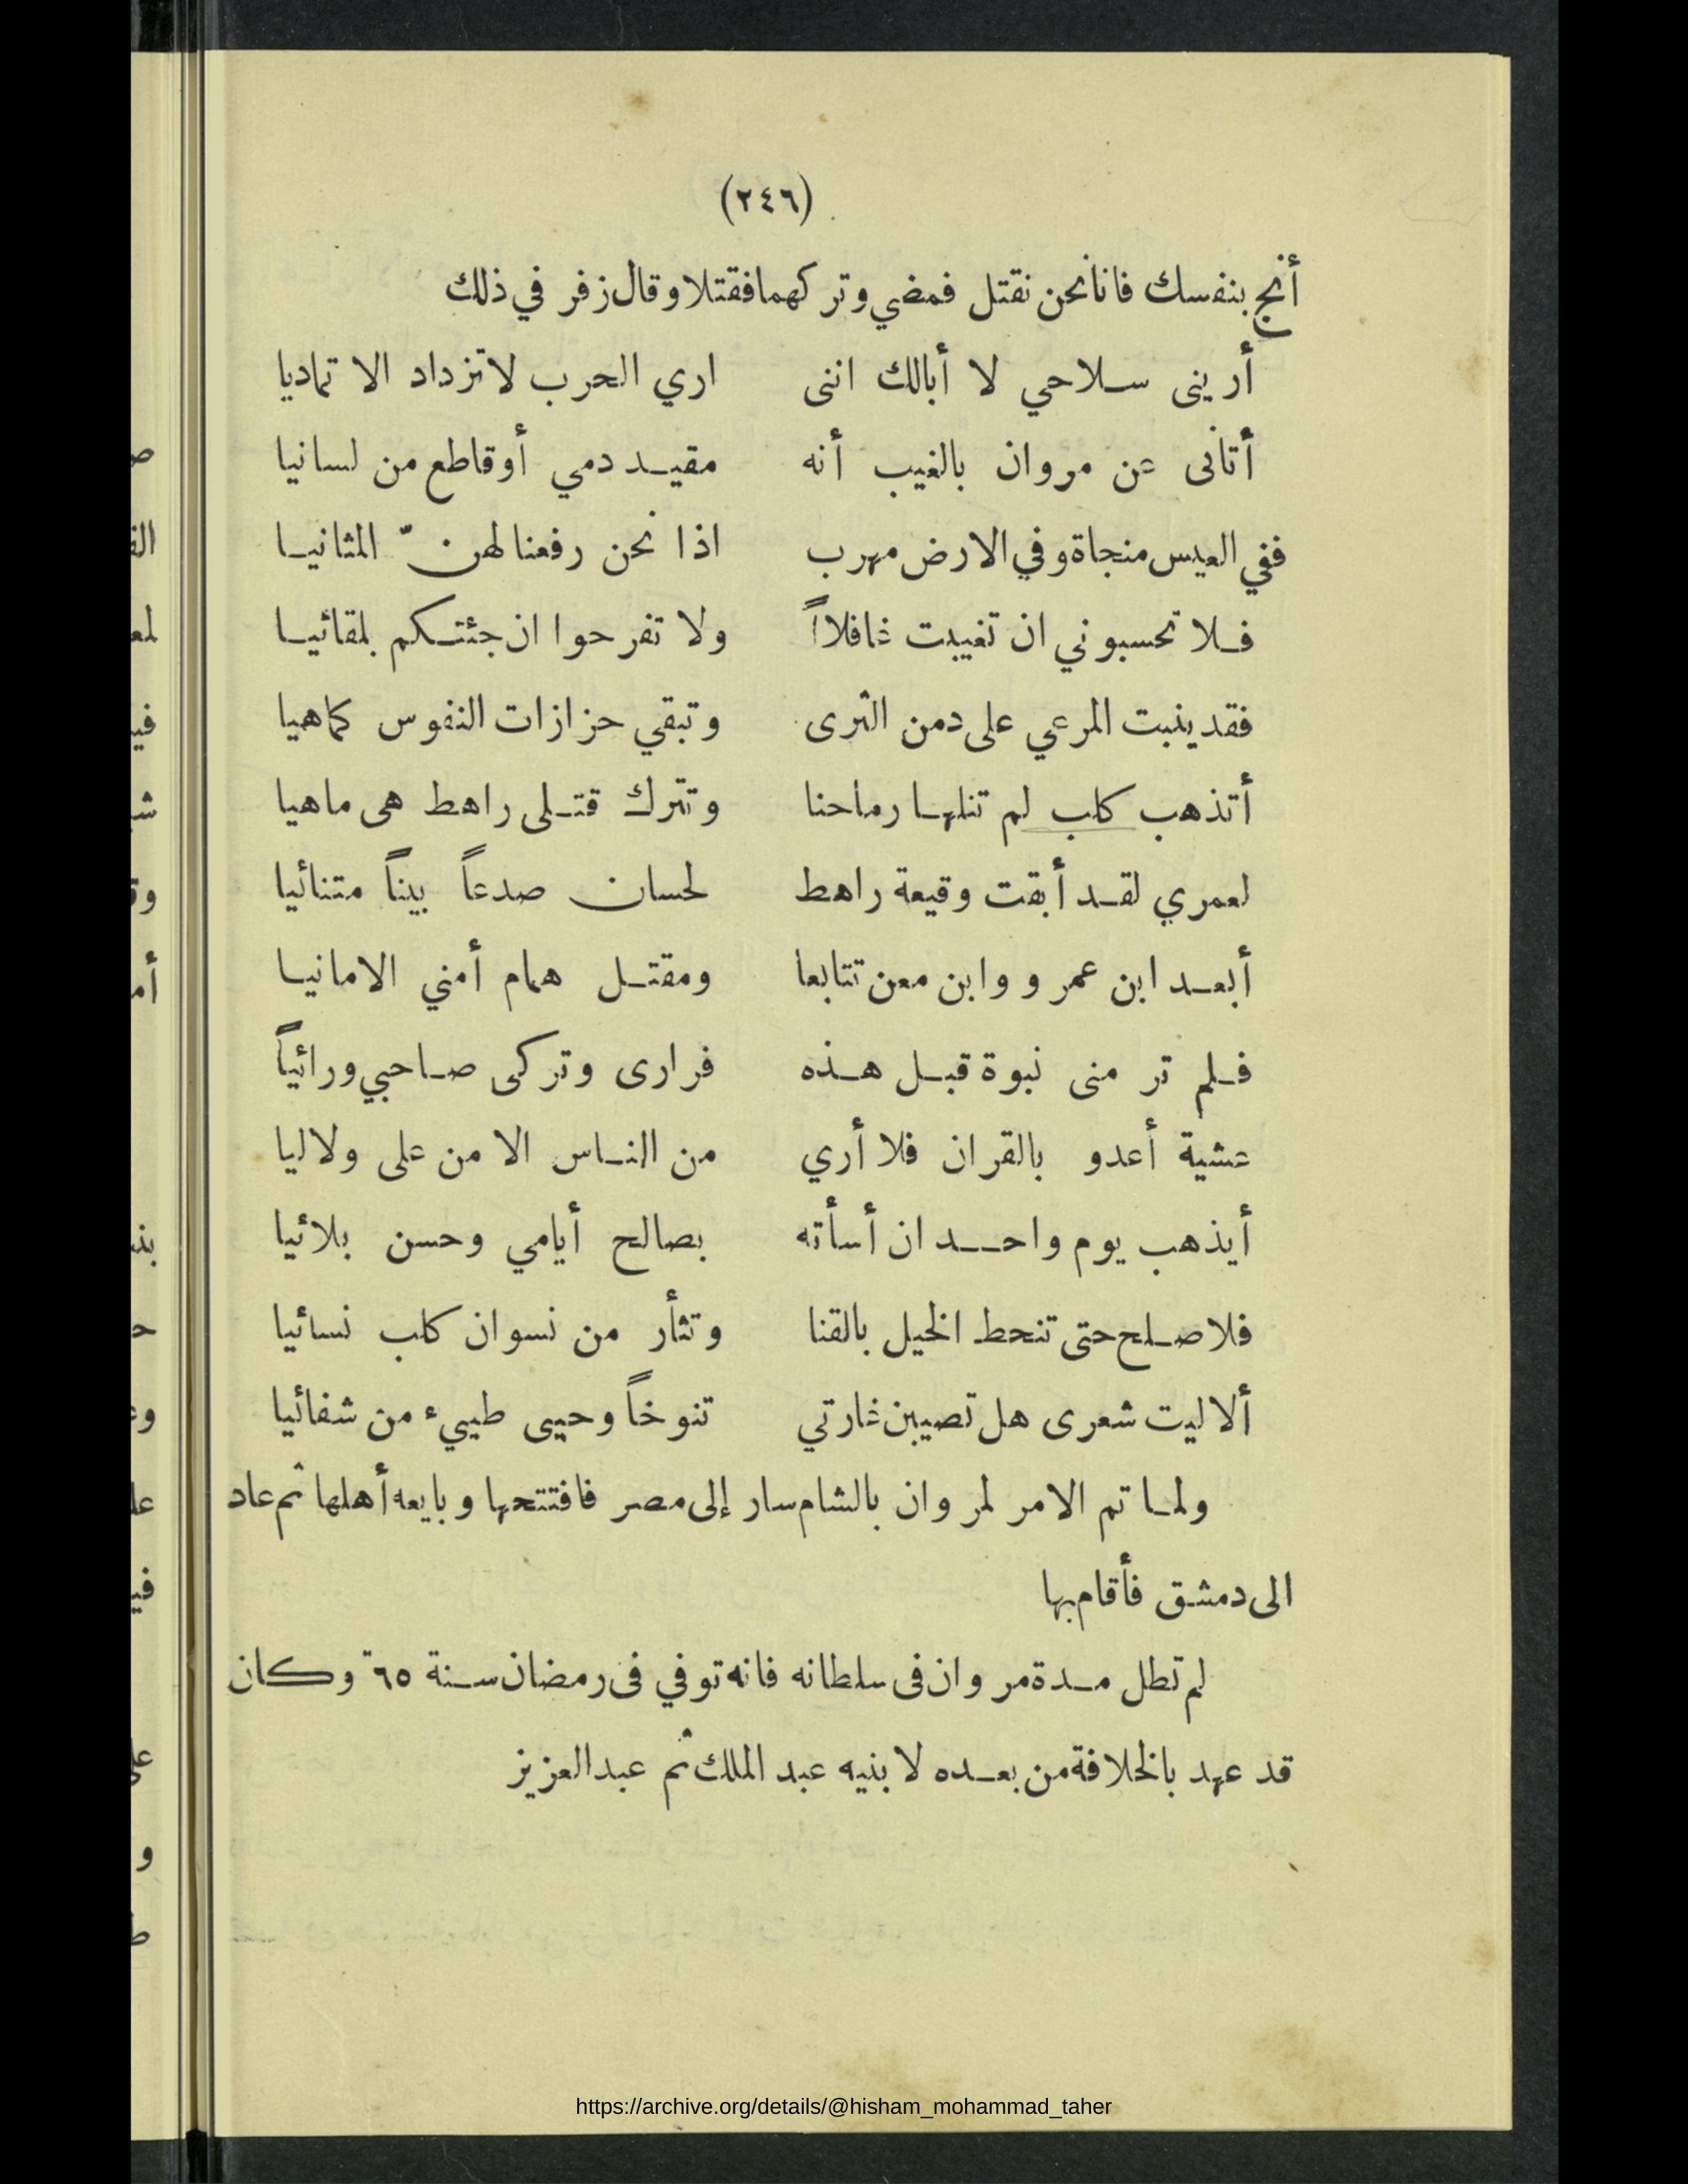 (٢٤٦)
أنج بنفسك فانا نحن نقتل فمضي وتركهما فقتلا وقال زفر في ذلك
أريني سلاحي لا أبالك انني اري الحرب لا تزداد الا تماديا
أتاني عن مروان بالغيب أنه مقيد دمي أو قاطع من لسانيا
ففي العيس منجاة وفي الارض مهرب اذا نحن رفعنا لهنّ المثانيا
فلا تحسبوني ان تغيبت غافلاً ولا تفرحوا ان جئتكم بلقائيا
فقد ينبت المرعي على دمن الثرى وتبقي حزازات النفوس كماهيا
أتذهب كلب لم تنلها رماحنا وتترك قتلى راهط هى ماهيا
لعمري لقد أبقت وقيعة راهط لحسان صدعاً بيناً متنائيا
أبعد ابن عمرو وابن معن تتابعا ومقتل همام أمني الامانيا
فلم تر منى نبوة قبل هذه فرارى وتركى صاحبي ورائياً
عشية أعدو بالقران فلا أري من الناس الا من على ولا ليا
أيذهب يوم واحد ان أسأته بصالح أيامي وحسن بلائيا
فلا صلح حتى تنحط الخيل بالقنا وتثأر من نسوان كلب نسائيا
ألا ليت شعرى هل تصيبن غارتي تنوخاً وحيى طييء من شفائيا
ولما تم الامر لمروان بالشام سار إلى مصر فافتتحها وبايعه أهلها ثم عاد
الى دمشق فأقام بها
لم تطل مدة مروان فى سلطانه فانه توفي فى رمضان سنة ٦٥ وكان
قد عهد بالخلافة من بعده لابنيه عبد الملك ثم عبد العزيز
https://archive.org/details/@hisham_mohammad_taher